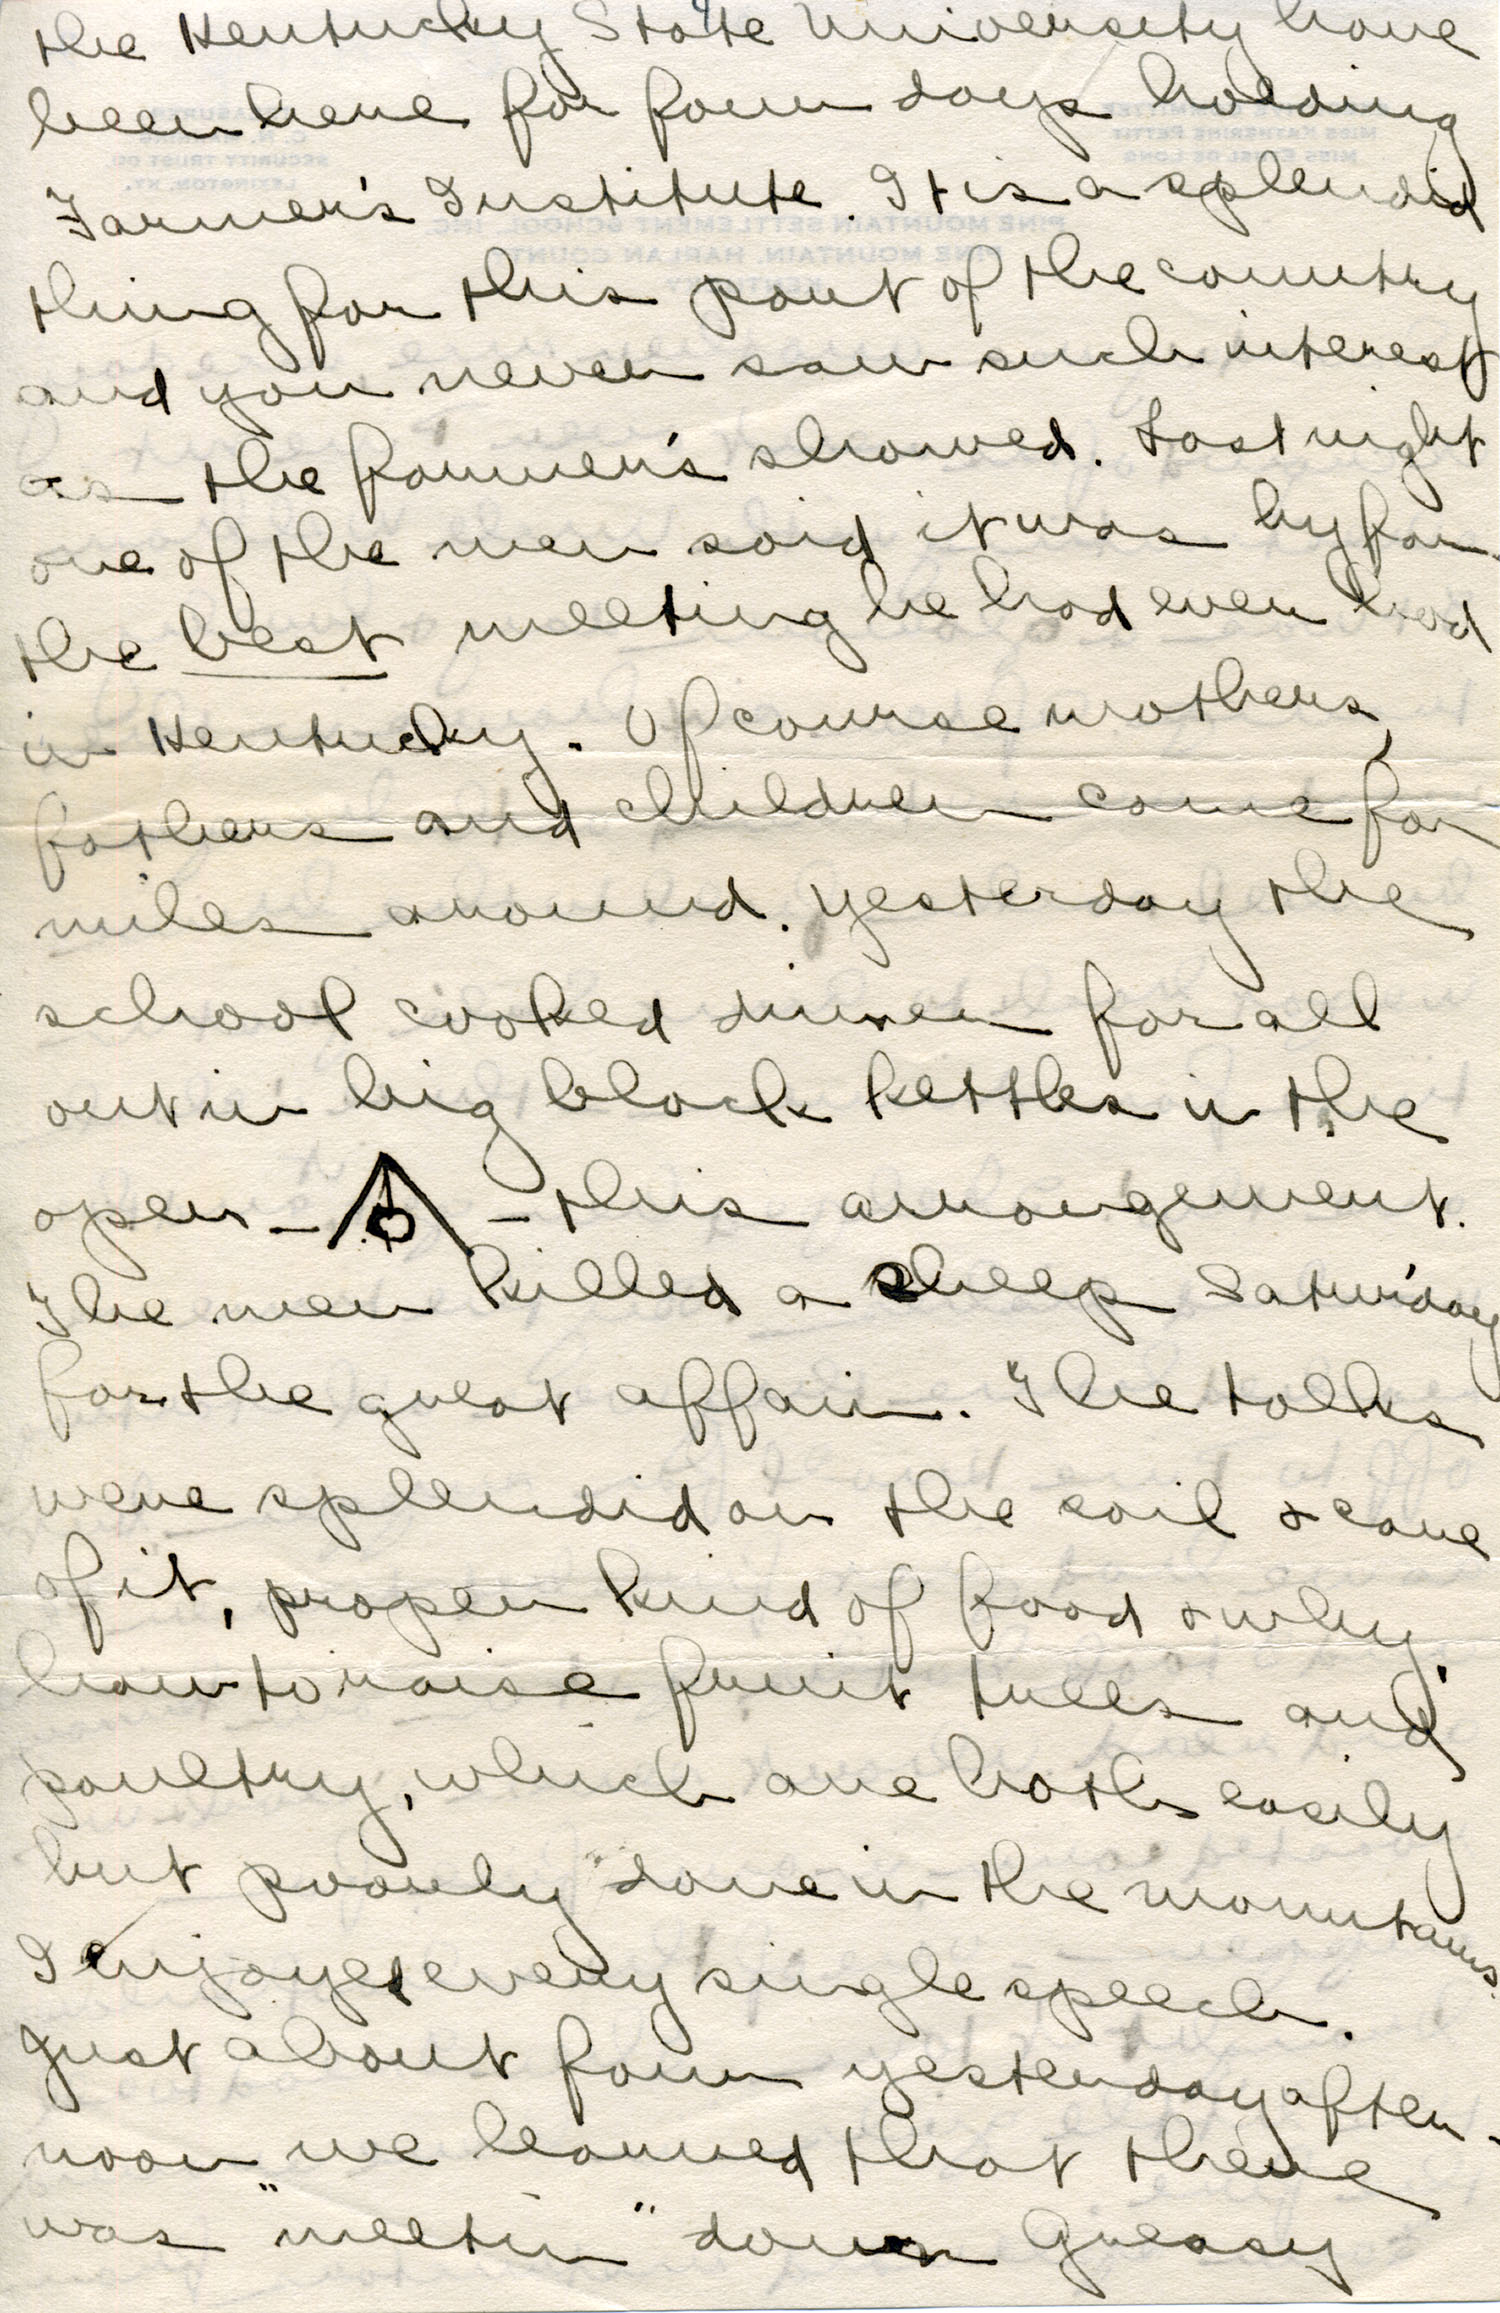 the Kentucky State University have
been here for four days holding
Farmer's Institute. It is a splendid
thing for this part of the country
and you never saw such interest
as the farmer's showed. Last night
one of the men said it was by far
the best meeting he had ever had
in Kentucky. Of course mothers,
fathers and children come for
miles around. Yesterday the
school cooked dinner for all
out in big black kettles in the
open - - this arrangement.
The men killed a sheep Saturday
for the great affair. The talks
were splendid on the soil & care
of it, proper kind of food & why,
how to raise fruit trees and
poultry, which are both easily
but poorly done in the mountains.
I enjoyed every single speech.
Just about four yesterday after-
noon we learned that there
was "meetin" down Greasy